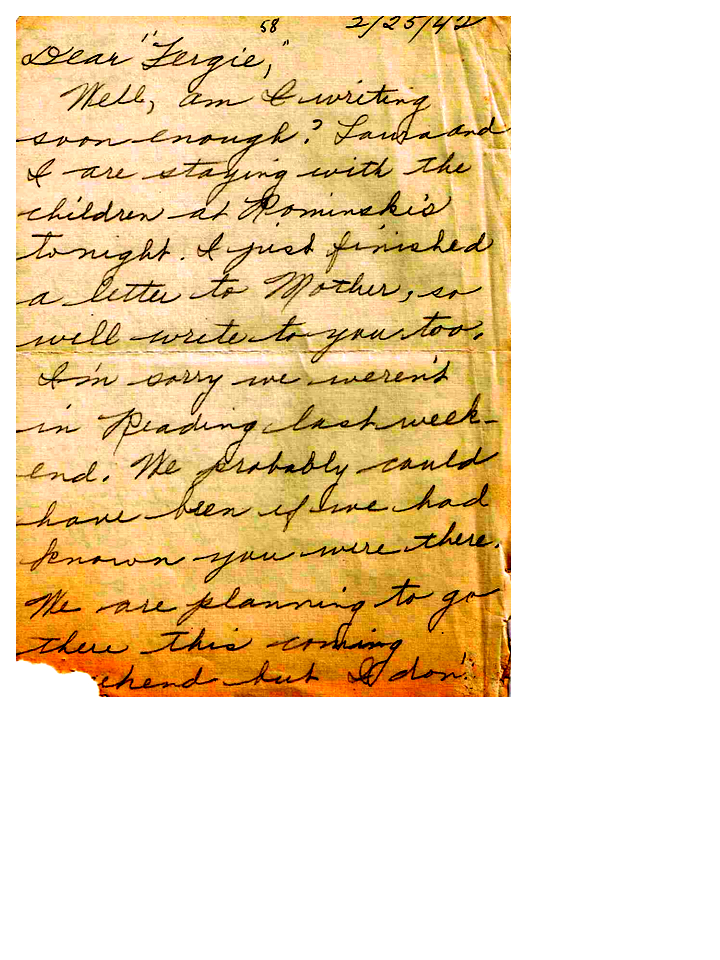 58 2/25/42
Dear "Fergie,"
Well, am I writing
soon enough? Laura and
I are staying with the
children at Rominski's
tonight. I just finished
a letter to Mother, so
will write to you too.
I'm sorry we weren't
in Reading last week-
end. We probably could
have been if we had
known you were there.
We are planning to go
there this coming
ekend but I don'